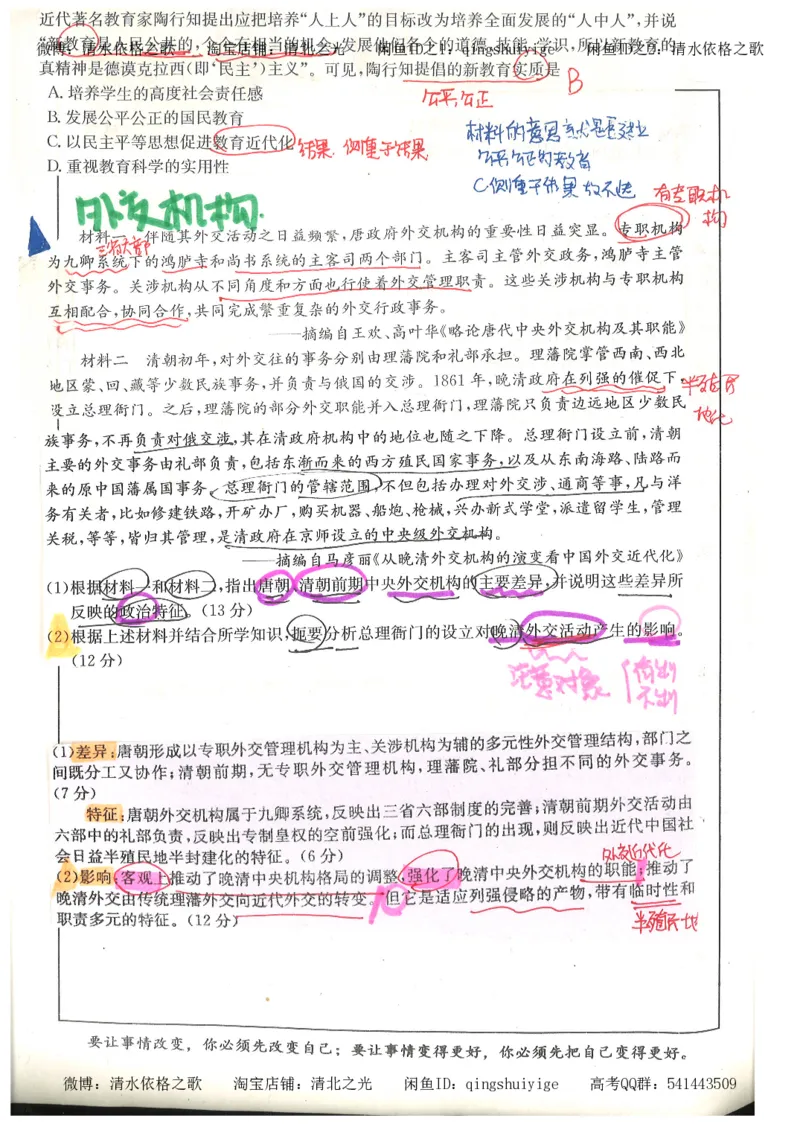 近代著名教育家陶行知提出应把培养“人上人”的目标改为培养全面发展的“人中人”,并说
“新教育是人民公共的,个个有相当的机会,发展他们各个的道德、技能、学识,所以新教育的
微博:清水依格之歌 淘宝店铺:清北之光 闲鱼ID之1:qingshuiyige 闲鱼ID之3:清水依格之歌
真精神是德谟克拉西(即‘民主’)主义”。可见,陶行知提倡的新教育实质是
B
A. 培养学生的高度社会责任感
公平公正
B. 发展公平公正的国民教育
材料的意思就是要建立
C. 以民主平等思想促进教育近代化
结果. 侧重于结果
公平公正的教育
D. 重视教育科学的实用性
C侧重于结果 故不选
有专职机构
外交机构.
材料一 伴随其外交活动之日益频繁,唐政府外交机构的重要性日益突显。专职机构
三省六部
为九卿系统下的鸿胪寺和尚书系统的主客司两个部门。主客司主管外交政务,鸿胪寺主管
外交事务。关涉机构从不同角度和方面也行使着外交管理职责。这些关涉机构与专职机构
互相配合,协同合作,共同完成繁重复杂的外交行政事务。
——摘编自王欢、高叶华《略论唐代中央外交机构及其职能》
材料二 清朝初年,对外交往的事务分别由理藩院和礼部承担。理藩院掌管西南、西北
地区蒙、回、藏等少数民族事务,并负责与俄国的交涉。1861年,晚清政府在列强的催促下,
半殖民地化
设立总理衙门。之后,理藩院的部分外交职能并入总理衙门,理藩院只负责边远地区少数民
族事务,不再负责对俄交涉,其在清政府机构中的地位也随之下降。总理衙门设立前,清朝
主要的外交事务由礼部负责,包括东渐而来的西方殖民国家事务,以及从东南海路、陆路而
来的原中国藩属国事务。总理衙门的管辖范围,不但包括办理对外交涉、通商等事,凡与洋
务有关者,比如修建铁路,开矿办厂,购买机器、船炮、枪械,兴办新式学堂,派遣留学生,管理
关税,等等,皆归其管理,是清政府在京师设立的中央级外交机构。
——摘编自马彦丽《从晚清外交机构的演变看中国外交近代化》
(1)根据材料一和材料二,指出唐朝、清朝前期中央外交机构的主要差异,并说明这些差异所
反映的政治特征。(13分)
(2)根据上述材料并结合所学知识,扼要分析总理衙门的设立对晚清外交活动产生的影响。
(12分)
注意对象
(1)差异:唐朝形成以专职外交管理机构为主、关涉机构为辅的多元性外交管理结构,部门之
间既分工又协作;清朝前期,无专职外交管理机构,理藩院、礼部分担不同的外交事务。
(7分)
特征:唐朝外交机构属于九卿系统,反映出三省六部制度的完善;清朝前期外交活动由
六部中的礼部负责,反映出专制皇权的空前强化;而总理衙门的出现,则反映出近代中国社
会日益半殖民地半封建化的特征。(6分)
外交近代化
(2)影响:客观上推动了晚清中央机构格局的调整,强化了晚清中央外交机构的职能;推动了
晚清外交由传统理藩外交向近代外交的转变。但它是适应列强侵略的产物,带有临时性和
职责多元的特征。(12分)
半殖民地
要让事情改变,你必须先改变自己;要让事情变得更好,你必须先把自己变得更好。
微博:清水依格之歌 淘宝店铺:清北之光 闲鱼ID:qingshuiyige 高考QQ群:541443509